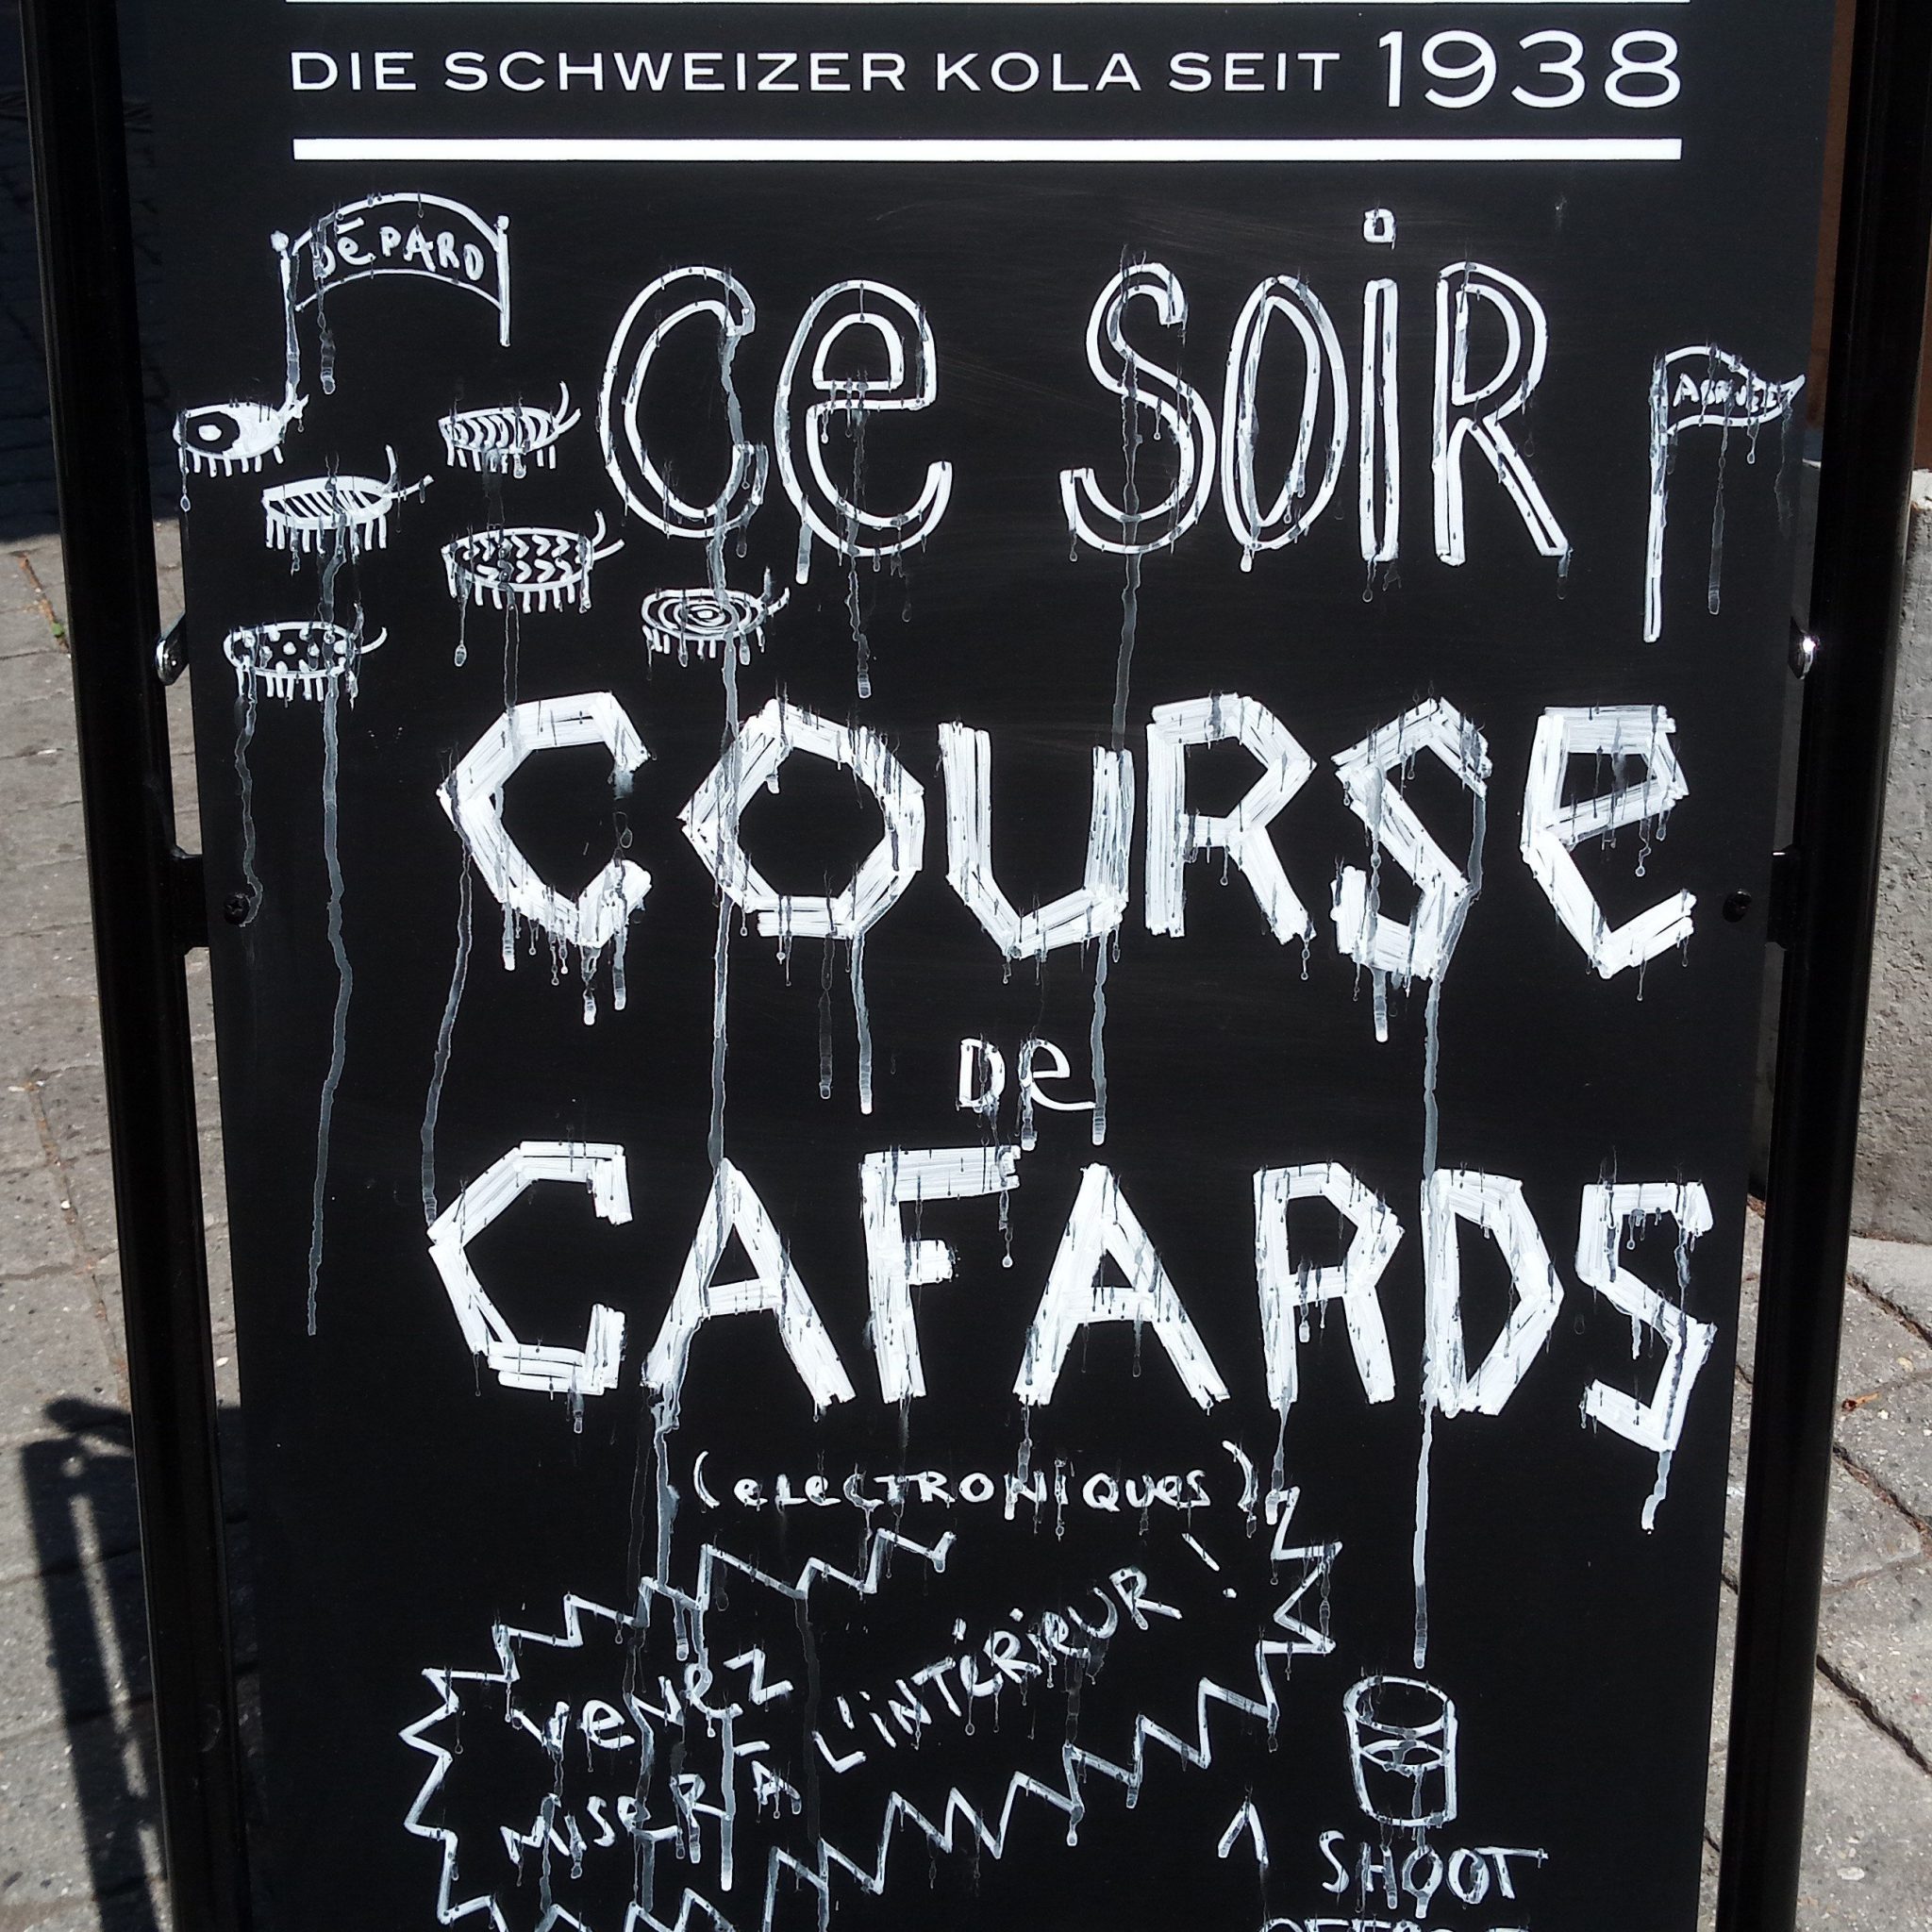 DIE SCHWEIZER KOLA SEIT 1938
DéPARD
Ce SOiR
ARRIVÉE
COURSe
De
CAFARDS
(eLeCTRONiQUeS)
VeNeZ
MiSeR À L'iNTÉRieUR!
1
SHOOT